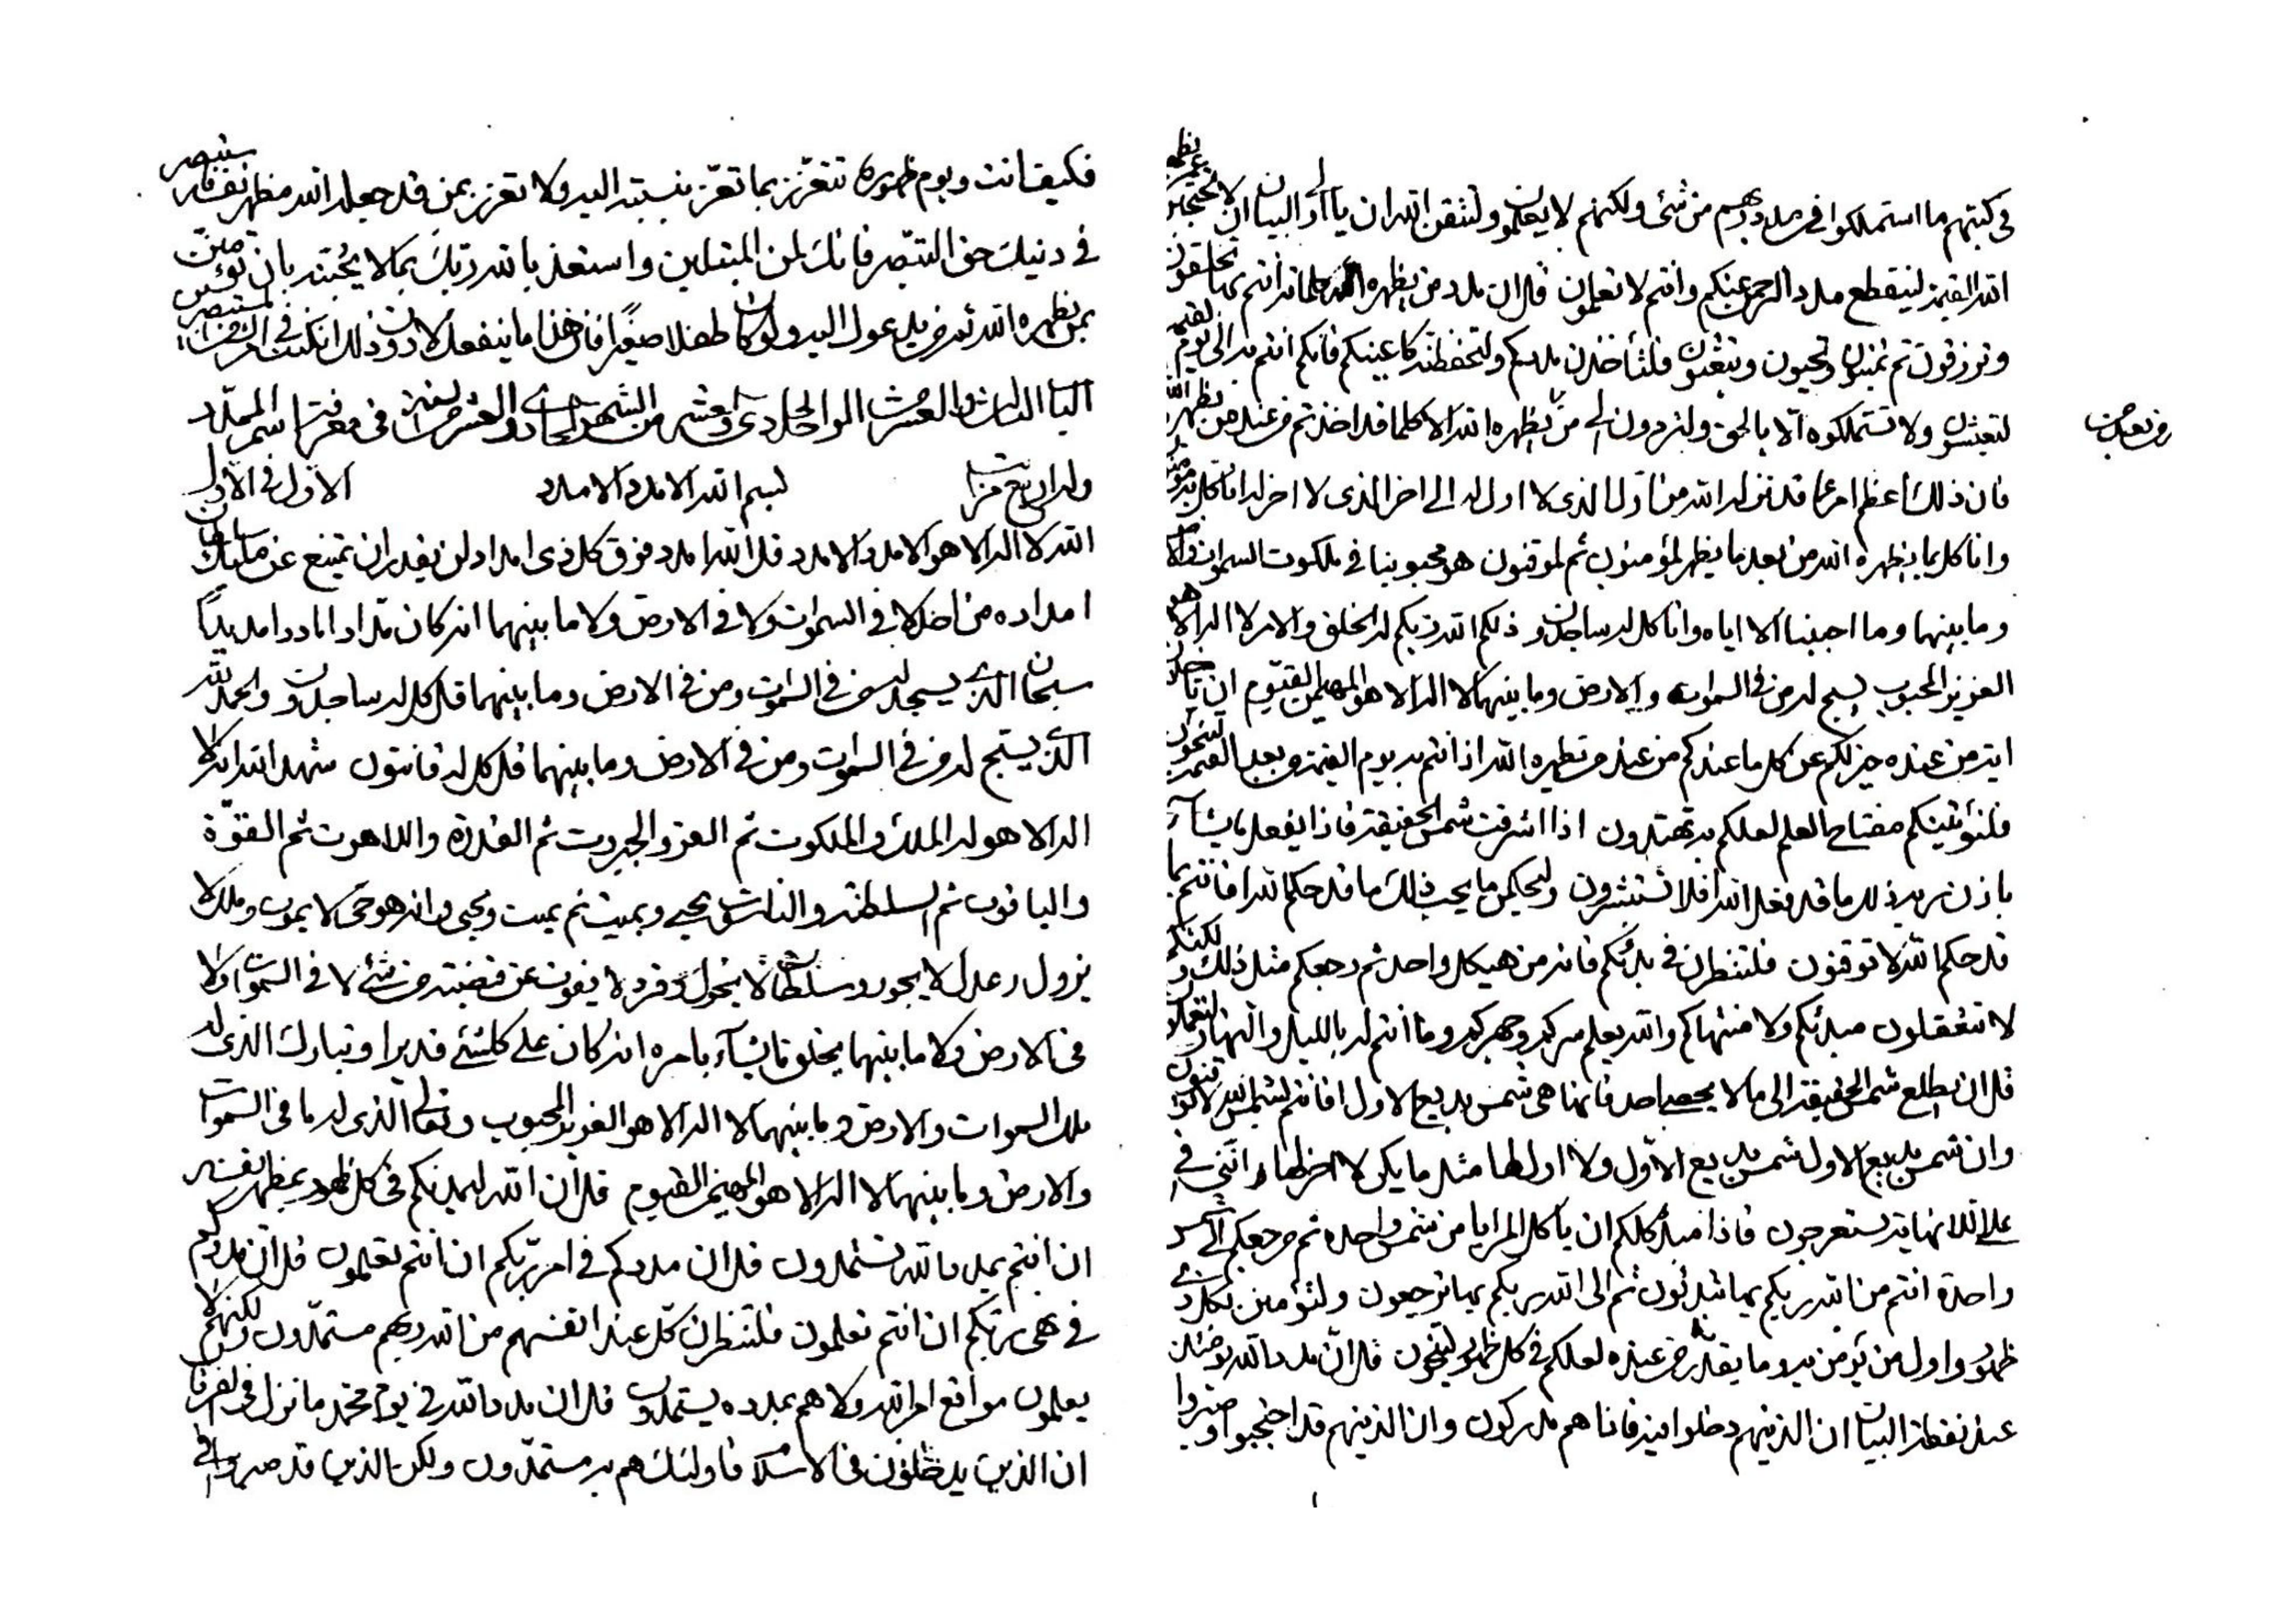 في كينتهم ما استملكوا في مدد ربهم من شئ ولكنهم لا يعلمون ولتتقن الله ان يا اولي البيان ان لا تحتجبن
الله القيمة لينقطع مدد الرحمن عنكم وانتم لا تعلمون قل ان مدد من يظهره الله كلما انتم بها تخلقون
وترزقون ثم تميتون وتحيون وتبعثون فلتأخذن مددكم ولتحفظنه كاعينكم فانكم انتم به الى يوم القيمة
لتعيشون ولا تستملكوه الا بالحق ولتردون الى من يظهره الله الا كلما قد اخذتم من عند من يظهره الله
فان ذلك اعظم امر عما قد نزل الله من اول الذي لا اول له الى اخر الذي لا اخر له انا كل به مؤمنون
وانا كل بما يظهره الله من بعد ما يظهر لمؤمنون ثم لموقنون هو محبوبنا في ملكوت السموات والارض
وما بينهما وما احببنا الا اياه وانا كل له ساجدون ذلكم الله ربكم له الخلق والامر لا اله الا هو
العزيز المحبوب يسبح له من في السموات والارض وما بينهما لا اله الا هو المهيمن القيوم ان يأخذن
اية من عنده خير لكم عن كل ما عندكم من عند من يظهره الله اذا انتم به يوم القيمة من بعد القيمة لتنجون
فلنؤتينكم مفتاح العلم لعلكم به تهتدون اذا اشرقت شمس الحقيقة فاذا يفعل ما يشاء
باذن ربه ذلك ما قد فعل الله افلا تستشرون وليحكمن ما يحب ذلك ما قد حكم الله افانتم بما
قد حكم الله لا توقنون فلتنظرن في بدئكم فانه من هيكل واحد ثم رجعكم مثل ذلك ولكنكم
لا تتعقلون مبدئكم ولا منتهاكم والله يعلم سركم وجهركم وما انتم له بالليل والنهار لتعملون
قل ان يطلع شمس الحقيقة الى ما لا يحصيه احد فانها هي شمس بديع الاول افانتم بشمس الله لا توقنون
وان شمس بديع الاول شمس بديع الاول ولا اول لها مثل ما يكن لا اخر لها وانني في
على اللانهاية يستعرجون فاذا مبدء كلكم ان يا كل المرايا من شمس واحدة ثم مرجعكم الى شمس
واحدة انتم من الله ربكم بها تبدئون ثم الى الله ربكم بها ترجعون ولتؤمنن بكل ذي
ظهور واول من يؤمن به وما يقدر من عنده لعلكم في كل ظهور لتنجون قل ان مدد الله يومئذ
عند نقطة البيان ان الذينهم دخلوا فيه فانا هم مدركون وان الذينهم قد احتجبوا وصبروا
فكيف انت ويوم ظهوره تتعزز بما تعزز بنسبته اليه ولا تعزز بمن قد جعله الله مظهر نفسه فلتستبصر
في دنيك حق التبصر فانك لمن المبتلين واستعذ بالله ربك بما لا يحجبنه بان تؤمنن
بمن يظهره الله ثم من يدعوك اليه ولو كان طفلا صغيرا فان هذا ما ينفعك لا دون ذلك ان كنت في امر الله لمستبصر
الباب الثالث والعشر من الواحد الحادي والعشر من الشهر الحادي والعشر من السنة في معرفة اسم الممدد
وله اربع مراتب
بسم الله الامدد الامدد
الاول في الاول
الله لا اله الا هو الامدد الامدد قل الله امدد فوق كل ذي امداد لن يقدر ان يمتنع عن مليك سلطان
امداده من احد لا في السموات ولا في الارض ولا ما بينهما انه كان مدادا ماددا مديدا
سبحان الذي يسجد له من في السموات ومن في الارض وما بينهما قل كل له ساجدون والحمد لله
الذي يسبح له من في السموات ومن في الارض وما بينهما قل كل له قانتون شهد الله انه لا
اله الا هو له الملك والملكوت ثم العز والجبروت ثم القدرة واللاهوت ثم القوة
والياقوت ثم السلطنة والناسوت يحيي ويميت ثم يميت ويحيى وانه هو حي لا يموت وملك لا
يزول وعدل لا يجور وسلطان لا يحول وفرد لا يفوت عن قبضته من شئ لا في السموات ولا
في الارض ولا ما بينهما يخلق ما يشاء بامره انه كان على كلشئ قديرا وتبارك الذي له
ملك السموات والارض وما بينهما لا اله الا هو العزيز المحبوب وتعالى الذي له ما في السموات
والارض وما بينهما لا اله الا هو المهيمن القيوم قل ان الله ليمدنكم في كل ظهور بمظهر نفسه
ان انتم بمدد الله تستمدون قل ان مددكم في امر ربكم ان انتم تعلمون قل ان مددكم
في نهي ربكم ان انتم تعلمون فلتنظرن كل عند انفسهم من الله ربهم مستمدون ولكنهم لا
يعلمون مواقع امر الله ولا هم بمدده يستمدون قل ان مدد الله في يوم محمد ما نزل في الفرقان
ان الذين يدخلون في الاسلام فاولئك هم به مستمدون ولكن الذين قد صبروا في